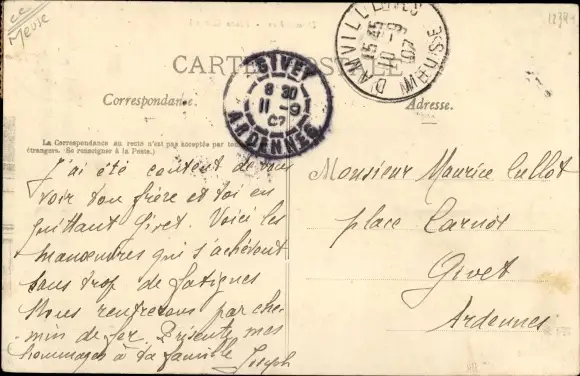 CC
Meuse
1234
CARTE POSTALE
Correspondance.
Adresse.
La Correspondance au recto n'est pas acceptée par tous
étrangers. (Se renseigner à la Poste.)
GIVET
8 30
11 -9
07
ARDENNES
DAMVILLERS
15 45
10 -9
07
MEUSE
J'ai été content de vous
voir ton frère et toi en
quittant Givet. Voici les
manœuvres qui s'achèvent
sans trop de fatigues
Nous rentrerons par che-
min de fer. Présente mes
hommages à ta famille Joseph
Monsieur Maurice Cullot
place Carnot
Givet
Ardennes